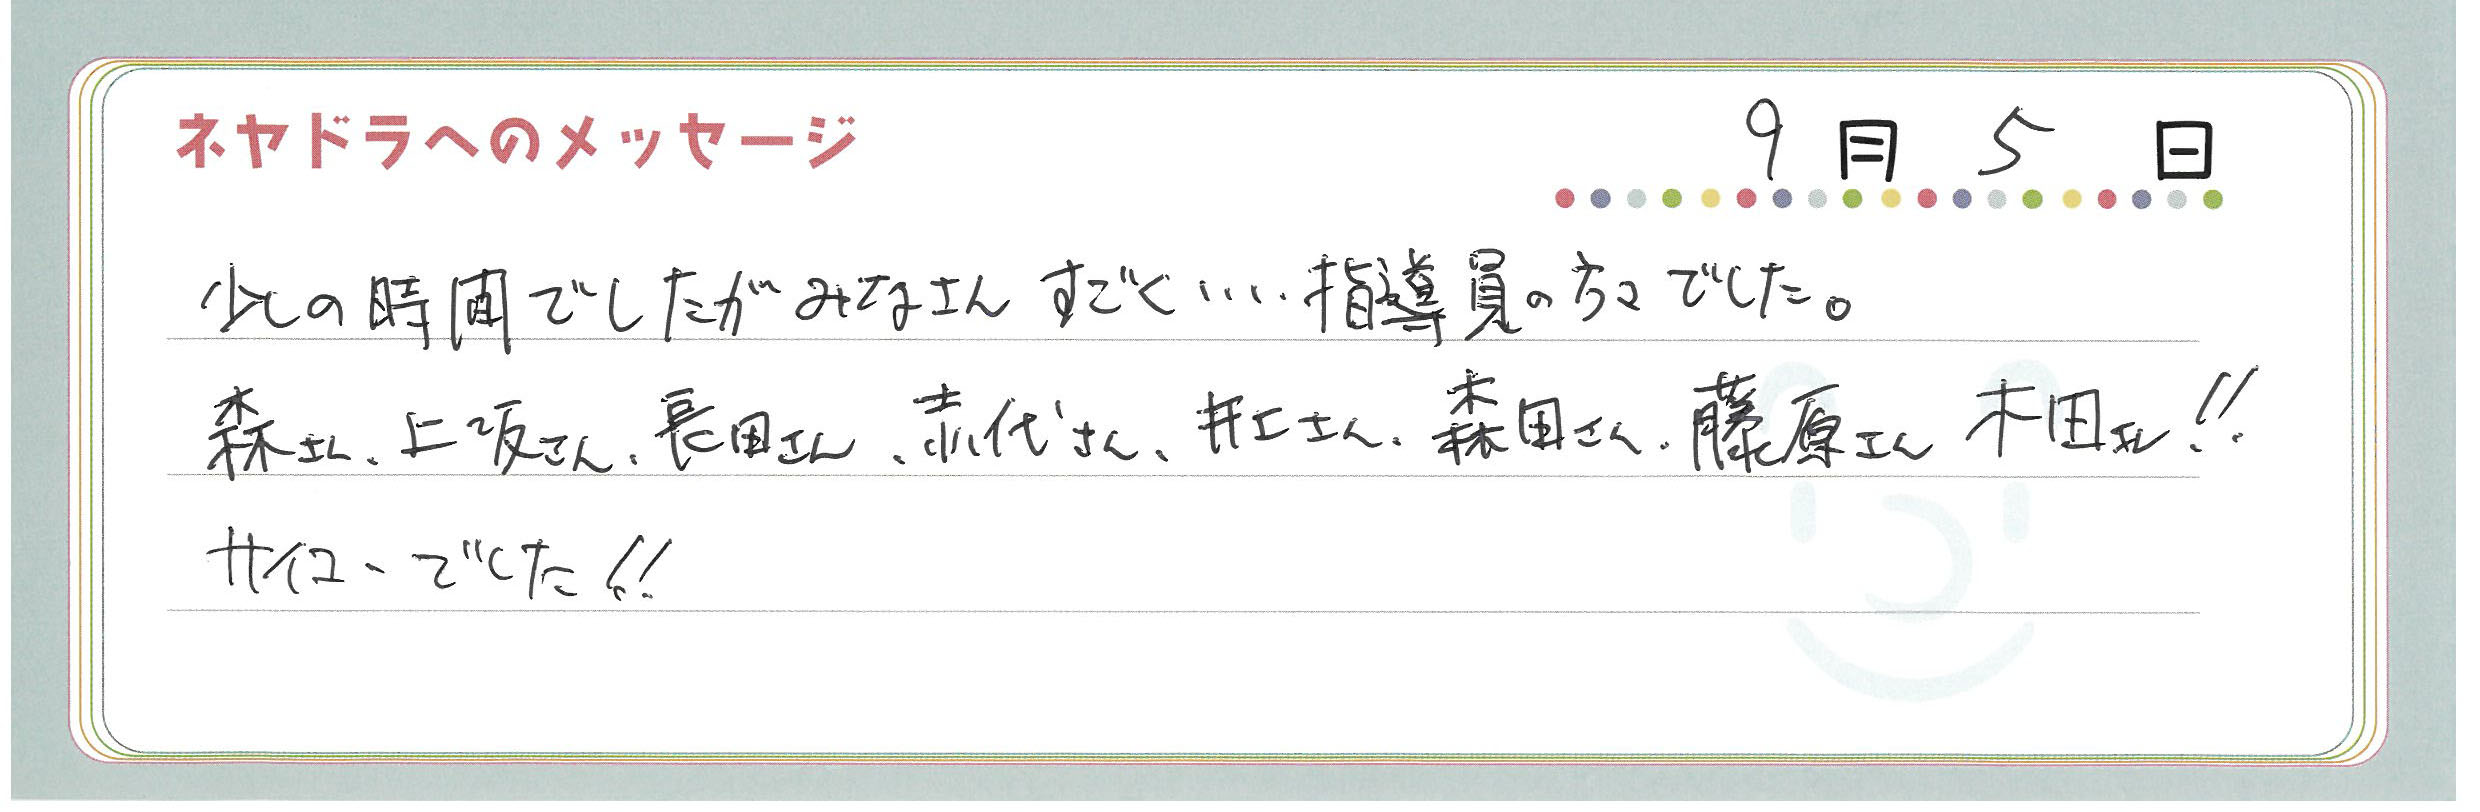 ネヤドラへのメッセージ
9月5日
少しの時間でしたがみなさんすごくいい指導員の方々でした。
森さん、上坂さん、長田さん、赤代さん、井上さん、森田さん、藤原さん 木田さん!!
サイコーでした!!